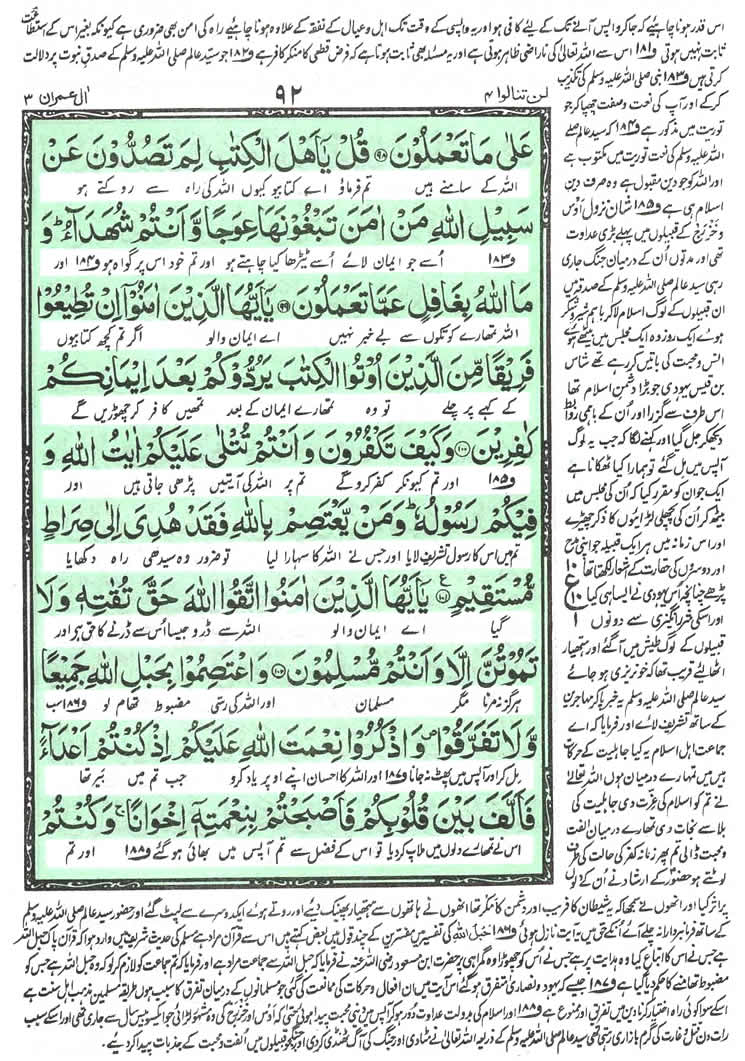 اس قدر ہونا چاہیے کہ جا کر واپس آنے تک کے لئے کافی ہو اور یہ واپسی کے وقت تک اہل و عیال کے نفقہ کے علاوہ ہونا چاہئیے راہ کی امن بھی ضروری ہے کیونکہ بغیر اس کے استطاعت
ثابت نہیں ہوتی و۱۸۱ اس سے اللہ تعالیٰ کی ناراضی ظاہر ہوتی ہے اور یہ مسئلہ بھی ثابت ہوتا ہے کہ فرض قطعی کا منکر کافر ہے و۱۸۲ جو سید عالم صلی اللہ علیہ وسلم کے صدق نبوت پر دلالت
لن تنالوا ۴
۹۲
اٰل عمران ۳
عَلٰى مَا تَعْمَلُوْنَ ۹۸ قُلْ يٰۤاَهْلَ الْكِتٰبِ لِمَ تَصُدُّوْنَ عَنْ
اللہ کے سامنے ہیں تم فرماؤ اے کتابیو کیوں اللہ کی راہ سے روکتے ہو
سَبِيْلِ اللّٰهِ مَنْ اٰمَنَ تَبْغُوْنَهَا عِوَجًا وَّ اَنْتُمْ شُهَدَآءُ ؕ وَ
و۱۸۳ اُسے جو ایمان لائے اُسے ٹیڑھا کیا چاہتے ہو اور تم خود اس پر گواہ ہو و۱۸۴ اور
مَا اللّٰهُ بِغَافِلٍ عَمَّا تَعْمَلُوْنَ ۹۹ يٰۤاَيُّهَا الَّذِيْنَ اٰمَنُوْۤا اِنْ تُطِيْعُوْا
اللہ تمھارے کوتکوں سے بے خبر نہیں اے ایمان والو اگر تم کچھ کتابیوں
فَرِيْقًا مِّنَ الَّذِيْنَ اُوْتُوا الْكِتٰبَ يَرُدُّوْكُمْ بَعْدَ اِيْمَانِكُمْ
کے کہے پر چلے تو وہ تمھارے ایمان کے بعد تمھیں کافر کر چھوڑیں گے
كٰفِرِيْنَ ۱۰۰ وَ كَيْفَ تَكْفُرُوْنَ وَ اَنْتُمْ تُتْلٰى عَلَيْكُمْ اٰيٰتُ اللّٰهِ وَ
و۱۸۵ اور تم کیونکر کفر کرو گے تم پر اللہ کی آیتیں پڑھی جاتی ہیں اور
فِيْكُمْ رَسُوْلُهٗ ؕ وَ مَنْ يَّعْتَصِمْ بِاللّٰهِ فَقَدْ هُدِيَ اِلٰى صِرَاطٍ
تم میں اس کا رسول تشریف لایا اور جس نے اللہ کا سہارا لیا تو ضرور وہ سیدھی راہ دکھایا
مُّسْتَقِيْمٍ ۱۰۱ ع يٰۤاَيُّهَا الَّذِيْنَ اٰمَنُوا اتَّقُوا اللّٰهَ حَقَّ تُقٰتِهٖ وَ لَا
گیا اے ایمان والو اللہ سے ڈرو جیسا اُس سے ڈرنے کا حق ہے اور
تَمُوْتُنَّ اِلَّا وَ اَنْتُمْ مُّسْلِمُوْنَ ۱۰۲ وَ اعْتَصِمُوْا بِحَبْلِ اللّٰهِ جَمِيْعًا
ہرگز نہ مرنا مگر مسلمان اور اللہ کی رسّی مضبوط تھام لو و۱۸۶ سب
وَّ لَا تَفَرَّقُوْا ۪ وَ اذْكُرُوْا نِعْمَتَ اللّٰهِ عَلَيْكُمْ اِذْ كُنْتُمْ اَعْدَآءً
مل کر اور آپس میں پھٹ نہ جانا و۱۸۷ اور اللہ کا احسان اپنے اوپر یاد کرو جب تم میں بَیر تھا
فَاَلَّفَ بَيْنَ قُلُوْبِكُمْ فَاَصْبَحْتُمْ بِنِعْمَتِهٖۤ اِخْوَانًا ۚ وَ كُنْتُمْ
اس نے تمھارے دلوں میں ملاپ کر دیا تو اس کے فضل سے تم آپس میں بھائی ہو گئے و۱۸۸ اور تم
کرتی ہیں و۱۸۳ نبی صلی اللہ علیہ وسلم کی تکذیب
کر کے اور آپ کی نعت و صفت چھپا کر جو
توریت میں مذکور ہے و۱۸۴ کہ سید عالم صلی
اللہ علیہ وسلم کی نعت توریت میں مکتوب ہے
اور اللہ کو جو دین مقبول ہے وہ صرف دین
اسلام ہی ہے و۱۸۵ شان نزول اَوْس
و خَزْرَج کے قبیلوں میں پہلے بڑی عداوت
تھی اور مدتوں اُن کے درمیان جنگ جاری
رہی سید عالم صلی اللہ علیہ وسلم کے صدقہ میں
ان قبیلوں کے لوگ اسلام لا کر باہم شیر و شکر
ہوئے ایک روز وہ ایک مجلس میں بیٹھے ہوئے
انس و محبت کی باتیں کر رہے تھے شاس
بن قیس یہودی جو بڑا دشمن اسلام تھا
اس طرف سے گزرا اور اُن کے باہمی روابط
دیکھ کر جل گیا اور کہنے لگا کہ جب یہ لوگ
آپس میں مل گئے تو ہمارا کیا ٹھکانا ہے
ایک جوان کو مقرر کیا کہ اُن کی مجلس میں
بیٹھ کر اُن کی پچھلی لڑائیوں کا ذکر چھیڑے
اور اس زمانہ میں ہر ایک قبیلہ جو اپنی مدح
اور دوسروں کی حقارت کے اشعار لکھتا تھا
پڑھے چنانچہ اُس یہودی نے ایسا ہی کیا
اور اسکی شر انگیزی سے دونوں
۱۰
ع
۱۰
۱
قبیلوں کے لوگ طیش میں آ گئے اور ہتھیار
اٹھا لئے قریب تھا کہ خونریزی ہو جائے
سید عالم صلی اللہ علیہ وسلم یہ خبر پا کر مہاجرین
کے ساتھ تشریف لائے اور فرمایا کہ اے
جماعت اہل اسلام یہ کیا جاہلیت کے حرکات
ہیں میں تمہارے درمیان ہوں اللہ تعالیٰ
نے تم کو اسلام کی عزت دی جاہلیت کی
بلا سے نجات دی تمھارے درمیان الفت
و محبت ڈالی تم پھر زمانہ کفر کی حالت کی طرف
لوٹتے ہو حضور کے ارشاد نے اُن کے دلوں
پر اثر کیا اور انھوں نے سمجھا کہ یہ شیطان کا فریب اور دشمن کا مکر تھا انھوں نے ہاتھوں سے ہتھیار پھینک دیئے اور روتے ہوئے ایک دوسرے سے لپٹ گئے اور حضور سید عالم صلی اللہ علیہ وسلم
کے ساتھ فرمانبردارانہ چلے آئے اُنکے حق میں یہ آیت نازل ہوئی و۱۸۶ حَبْلِ اللّٰهِ کی تفسیر میں مفسرین کے چند قول ہیں بعض کہتے ہیں اس سے قرآن مراد ہے مسلم کی حدیث شریف میں وارد ہوا کہ قرآن پاک حبل اللہ
ہے جس نے اس کا اتباع کیا وہ ہدایت پر ہے جس نے اُس کو چھوڑا وہ گمراہی پر حضرت ابن مسعود رضی اللہ عنہ نے فرمایا کہ حبل اللہ سے جماعت مراد ہے اور فرمایا کہ تم جماعت کو لازم کر لو کہ وہ حبل اللہ ہے جس کو
مضبوط تھامنے کا حکم دیا گیا ہے و۱۸۷ جیسے کہ یہود و نصاریٰ متفرق ہو گئے اس آیت میں ان افعال و حرکات کی ممانعت کی گئی جو مسلمانوں کے درمیان تفرق کا سبب ہوں طریقہ مسلمین مذہب اہل سنت ہے
اسکے سوا کوئی راہ اختیار کرنا دین میں تفریق اور ممنوع ہے و۱۸۸ اور اسلام کی بدولت عداوت دور ہو کر آپس میں دینی محبت پیدا ہوئی حتی کہ اَوْس اور خَزْرَج کی وہ مشہور لڑائی جو ایک سو بیس سال سے جاری تھی اور اسکے سبب
رات دن قتل غارت کی گرم بازاری رہتی تھی سید عالم صلی اللہ علیہ وسلم کے ذریعہ اللہ تعالیٰ نے مٹا دی اور جنگ کی آگ ٹھنڈی کر دی اور جنگجو قبیلوں میں الفت و محبت کے جذبات پیدا کر دیے۔